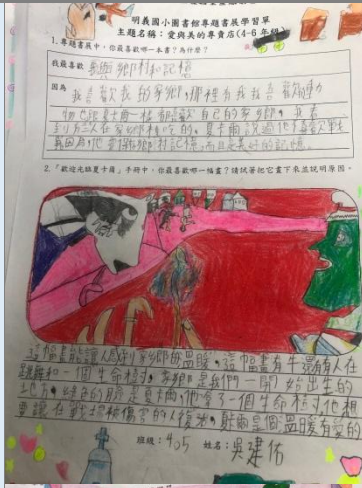 明義國小圖書館專題書展學習單
主題名稱:愛與美的專賣店(4-6年級)
1.專題書展中,你最喜歡哪一本書?為什麼?
我最喜歡 鄉村和記憶
因為 我喜歡我的家鄉,那裡有我喜歡的動
物 也跟夏卡爾一樣都喜歡自己的家鄉,
在家鄉 吃的。夏卡爾說過他喜歡
因為他 鄉村記憶,而且是美好的記憶。
2.「歡迎光臨夏卡爾」手冊中,你最喜歡哪一幅畫?請試著把它畫下來並說明原因。
這幅畫能讓人感到家鄉的溫暖,這幅畫有牛還有人在
跳舞和一個生命樹,家鄉是我們一開始出生的
地方,綠色的臉是夏卡爾,他拿了一個生命樹,他想
要讓在戰場被傷害的人復活,夏卡爾是個溫暖有愛的
班級:405 姓名:吳建佑